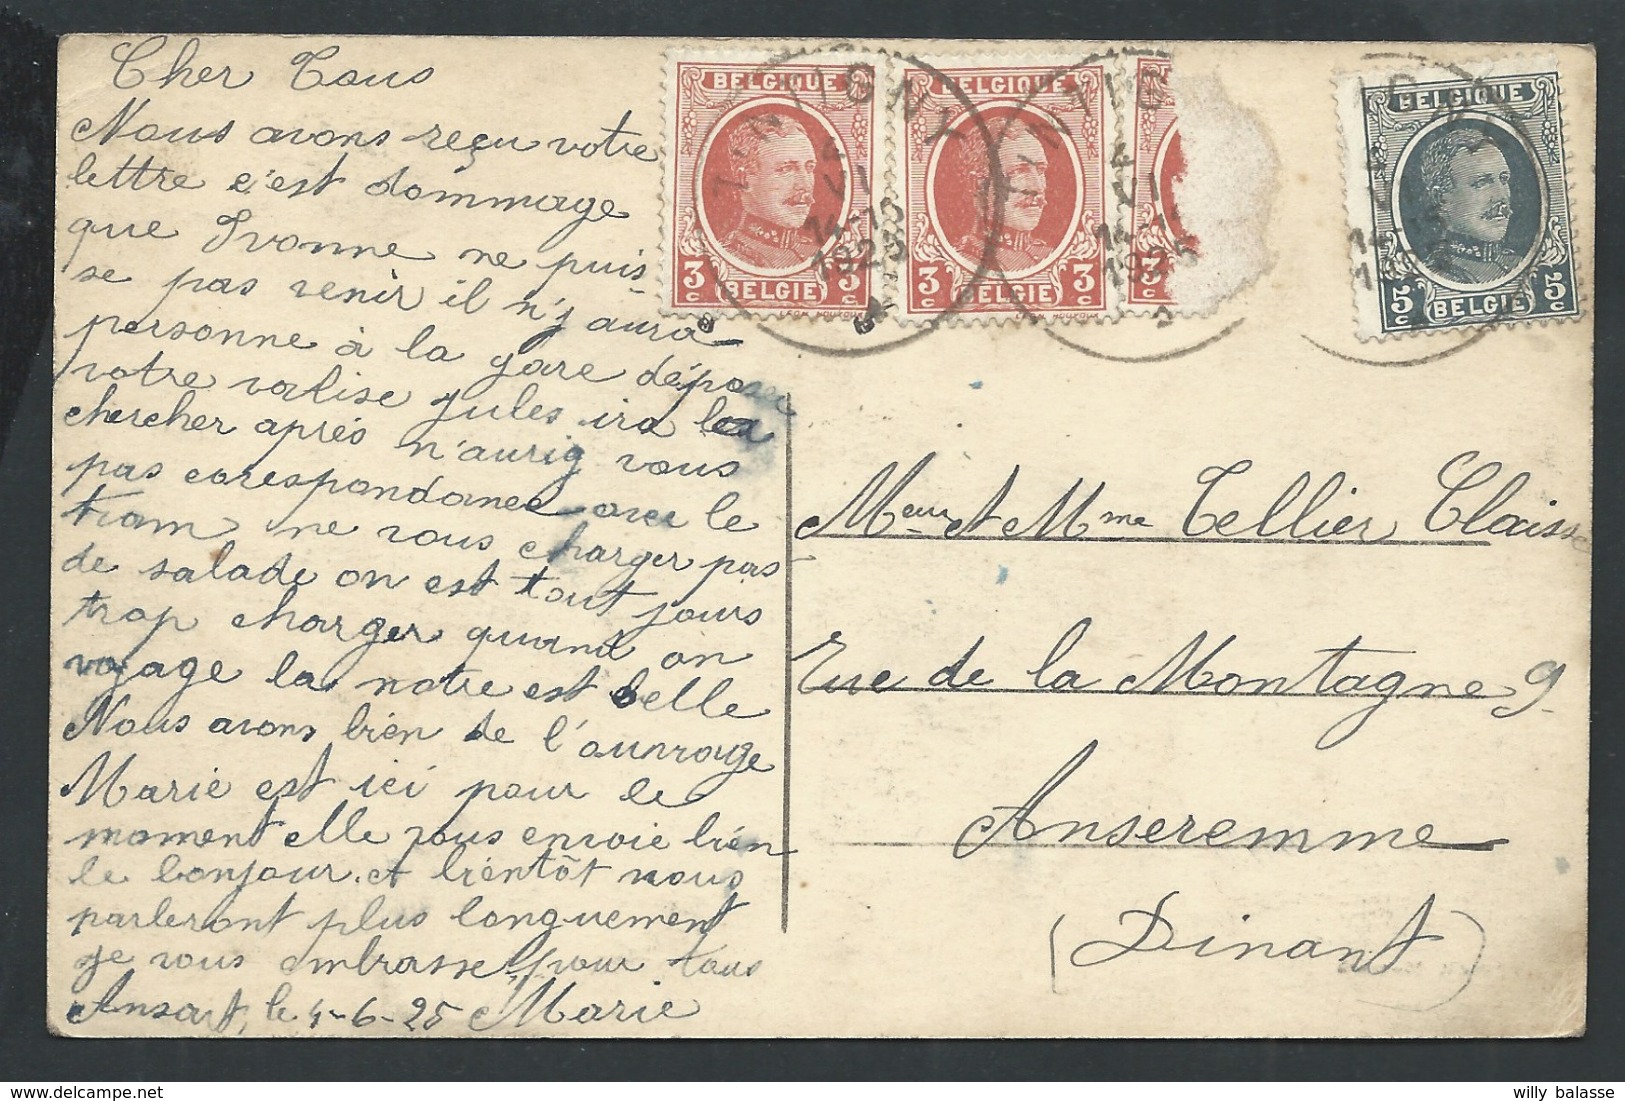 Cher Tous
Nous avons reçu votre
lettre c'est dommage
que Ivonne ne puis-
se pas venir il n'y aura
personne à la gare déposer
votre valise jules ira la
chercher après n'aurig vous
pas corespondance avec le
tram ne vous charger pas
de salade on est tout jours
trop charger quand on
voyage la notre est belle
Nous avons bien de l'ounrage
Marie est ici pour le
moment elle vous envoie bien
le bonjour. et bientôt nous
parleront plus longuement
je vous embrasse pour tous
Ansart, le 4-6-25 Marie
BELGIQUE
3c BELGIE 3c
BELGIQUE
3c BELGIE 3c
3c
BELGIQUE
5c BELGIE 5c
TINTIGNY
4 VI
14-15
1925
Meur et Mme Tellier Claisse
Rue de la Montagne 9
Anseremme
(Dinant)
willy balasse